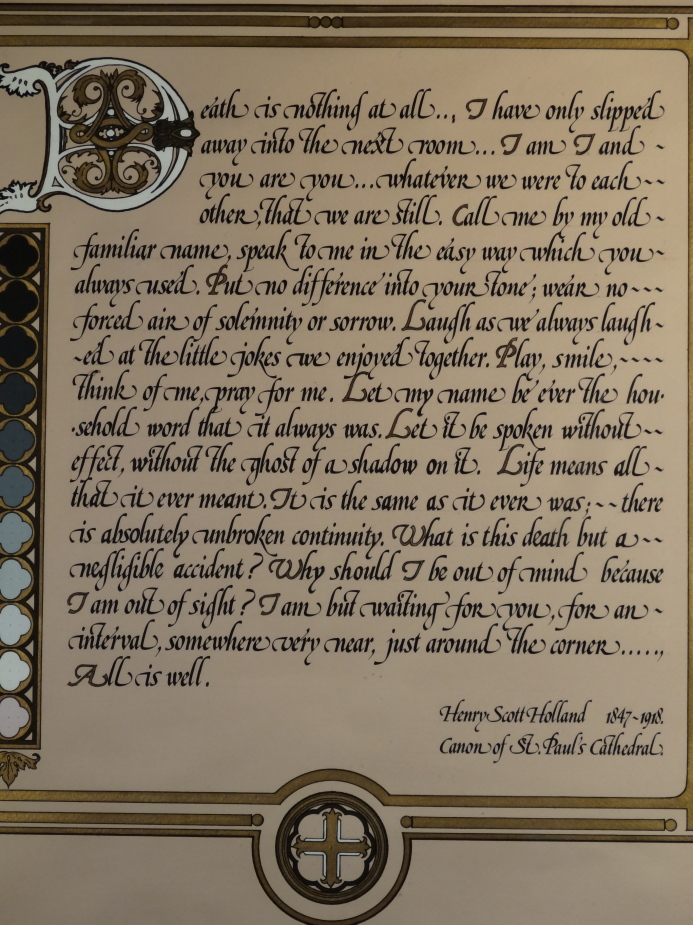 Death is nothing at all..., I have only slipped
away into the next room... I am I and -
you are you...whatever we were to each --
other, that we are still. Call me by my old -
familiar name, speak to me in the easy way which you -
always used. Put no difference into your tone; wear no ---
forced air of solemnity or sorrow. Laugh as we always laugh-
-ed at the little jokes we enjoyed together. Play, smile, ----
think of me, pray for me. Let my name be ever the hou-
-sehold word that it always was. Let it be spoken without --
effect, without the ghost of a shadow on it. Life means all -
that it ever meant. It is the same as it ever was; -- there
is absolutely unbroken continuity. What is this death but a --
negligible accident? Why should I be out of mind because
I am out of sight? I am but waiting for you, for an -
interval, somewhere very near, just around the corner.....,
All is well.
Henry Scott Holland 1847-1918.
Canon of St. Paul's Cathedral.